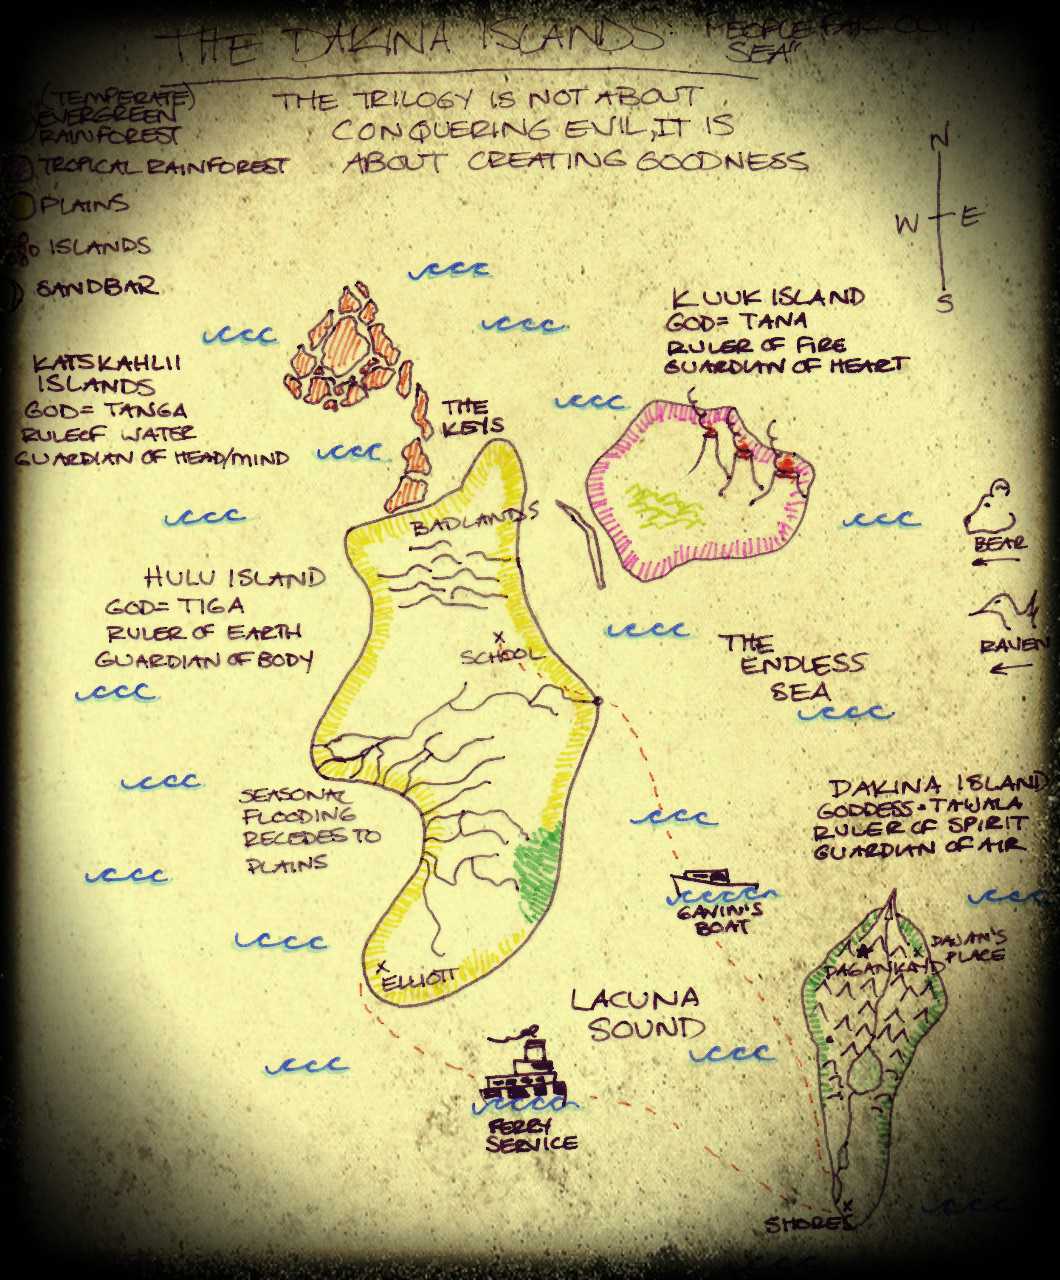 THE DAKINA ISLANDS: "PEOPLE FAR OUT TO
SEA"
(TEMPERATE)
EVERGREEN
RAINFOREST
TROPICAL RAINFOREST
PLAINS
ISLANDS
SANDBAR
THE TRILOGY IS NOT ABOUT
CONQUERING EVIL, IT IS
ABOUT CREATING GOODNESS
N
W E
S
KATSKAHLII
ISLANDS
GOD= TANGA
RULEOF WATER
GUARDIAN OF HEAD/MIND
THE
KEYS
KUUK ISLAND
GOD= TANA
RULER OF FIRE
GUARDIAN OF HEART
BADLANDS
BEAR
RAVEN
HULU ISLAND
GOD= TIGA
RULER OF EARTH
GUARDIAN OF BODY
SCHOOL
THE
ENDLESS
SEA
SEASONAL
FLOODING
RECEDES TO
PLAINS
DAKINA ISLAND
GODDESS= TAWALA
RULER OF SPIRIT
GUARDIAN OF AIR
GAVIN'S
BOAT
DAJAN'S
PLACE
DAGANKAND
ELLIOTT
LACUNA
SOUND
FERRY
SERVICE
SHORES